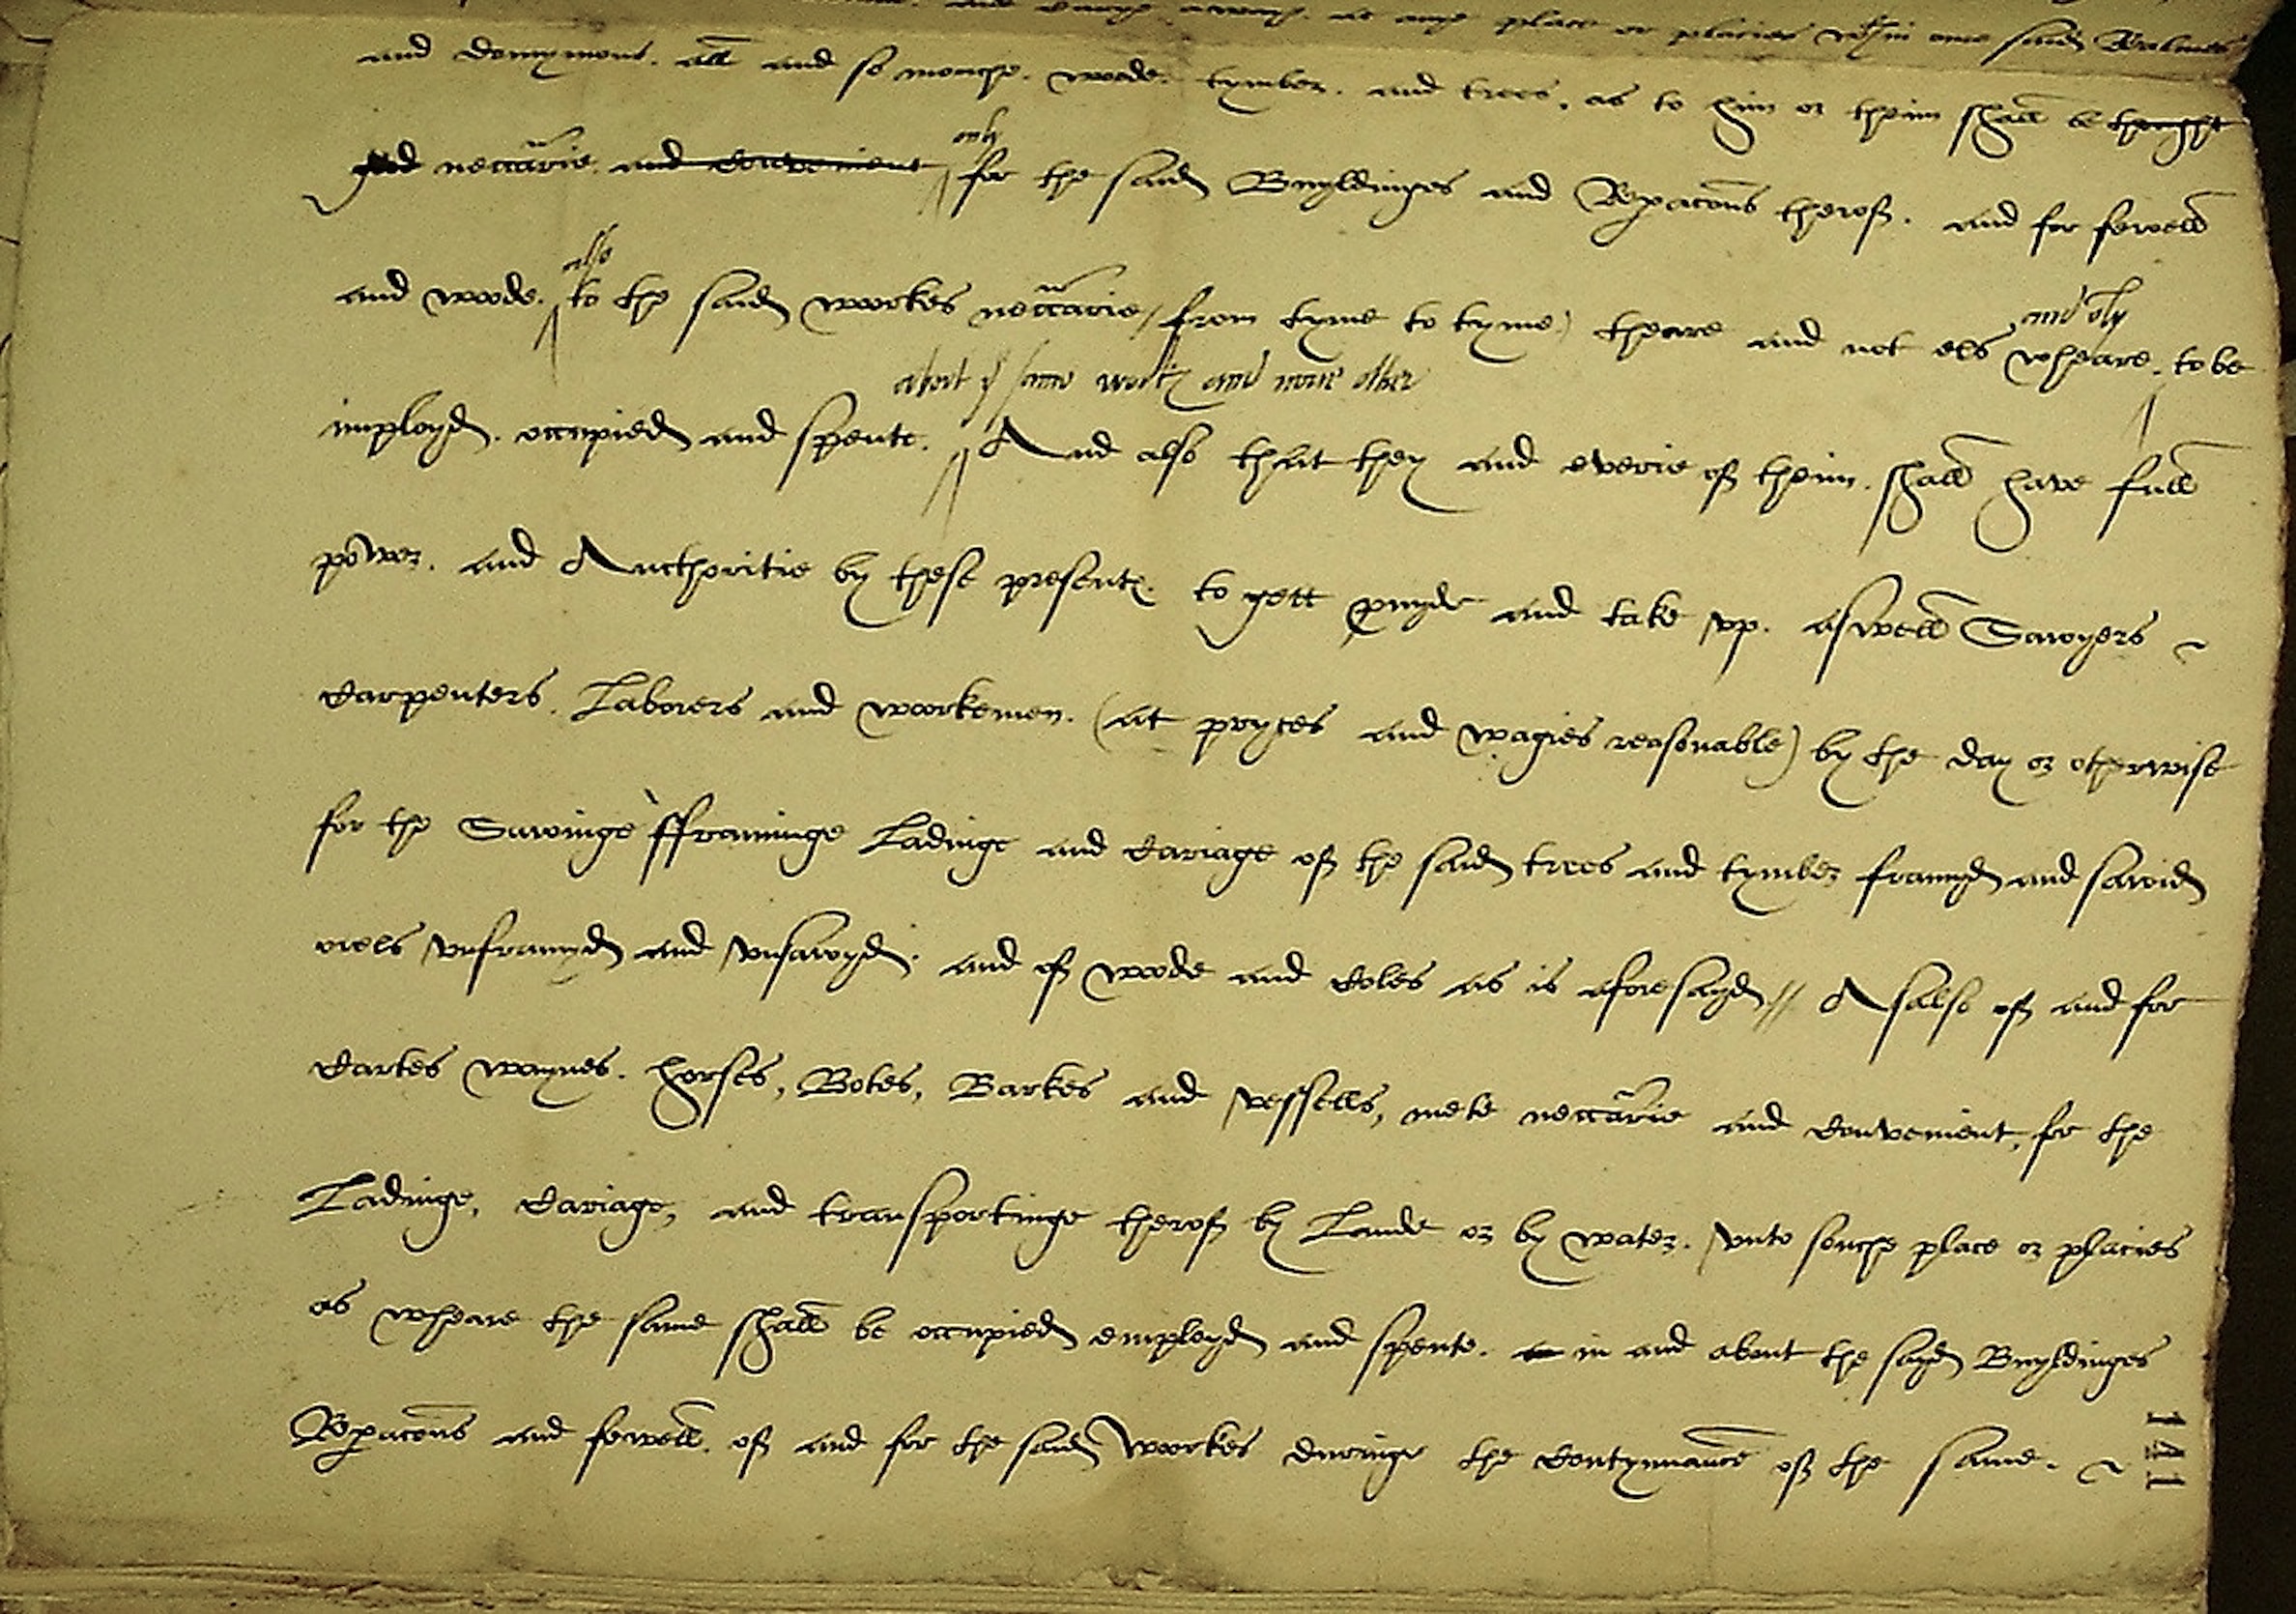 and carye awaye. at anye place or placies wthin owre said Realmes
and domynions. all and so mouche. woode. tymber. and trees. as to him or theim shall be thought
good neccarie. and convenient only for the said Buyldinges and Repacons therof. and for fewell
and woode. also to the said workes neccarie / from tyme to tyme) theare and not els wheare. and oly to be
imployd. occupied and spente. about ye same workes and none other And also that they and everie of theim. shall have full
power. and Aucthoritie by these presentes. to gett pruyde and take vp. aswell Sawyers
Carpenters. Laborers and workemen. (at pryces and wagies reasonable) by the day or otherwise
for the Sawinge fframinge Ladinge and Cariage of the said trees and tymber framyd and sawid
orels vnframyd and vnsawyd. and of woode and Coles as is aforesayd // Asalso of and for
Cartes waynes. horses, Botes, Barkes and vessells, mete neccarie and Convenient, for the
Ladinge, Cariage, and transportinge therof by Lande or by water. vnto souche place or placies
as wheare the same shall be occupied employd and spente. in and about the sayd Buyldinges
Repacons and fewell. of and for the said workes duringe the Contynuaunce of the same.
141